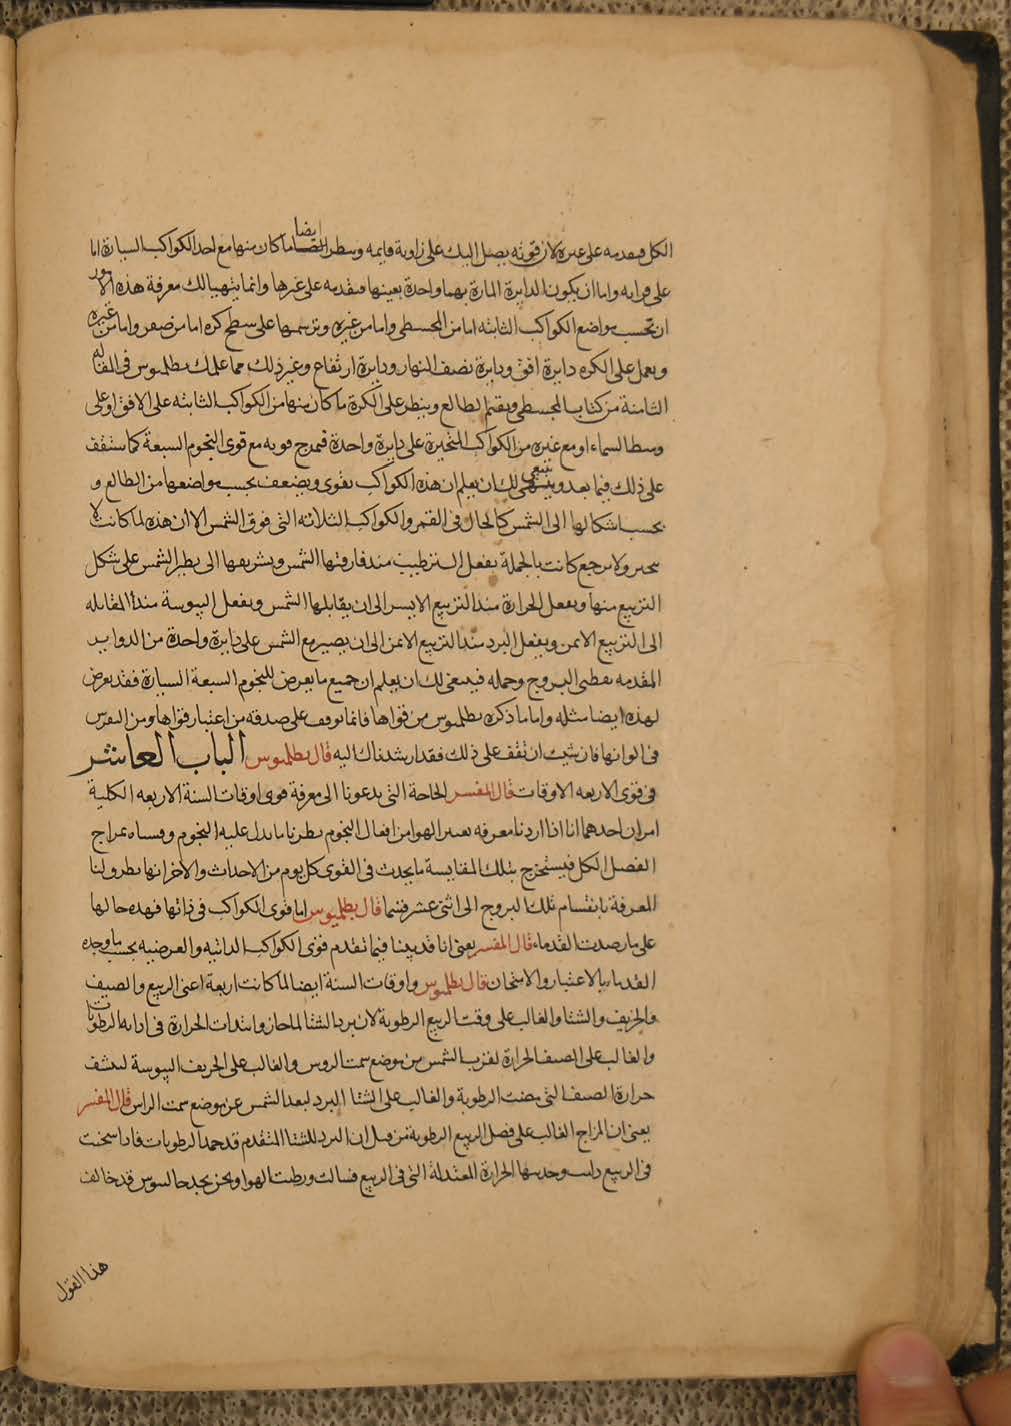 الكل فيقدمه على غيره لان قوته يصل اليك على زاوية قايمه وينظر ايضا ما كان منها مع احد الكواكب السيارة اما
على قرانه واما ان يكون الدايرة المارة بهما واحدة بعينها فيقدمه على غيرها وانما يتهيا لك معرفة هذه الامور
ان تحسب مواضع الكواكب الثابته اما من المجسطي واما من غيره وترسمها على سطح كره اما من صفر واما من غيره
ويعمل على الكره دايرة افق ودايرة نصف النهار ودايرة ارتفاع وغير ذلك مما علمك بطلميوس في المقاله
الثامنة من كتاب المجسطي ويقيم الطالع وينظر على الكرة ما كان منها من الكواكب الثابته على الافق او على
وسط السماء او مع غيره من الكواكب المتحيرة على دايرة واحدة فيمزج قوته مع قوى النجوم السبعة كما ستقف
على ذلك فيما بعد وينبغي لك ان يعلم ان هذه الكواكب يقوى ويضعف بحسب مواضعها من الطالع و
بحسب اشكالها الى الشمس كالحال في القمر والكواكب الثلاثه التي فوق الشمس الا ان هذه لما كانت لا
تتحير ولا يرجع كانت بالجملة يفعل الترطيب منذ فارقتها الشمس وبشريقها الى ينظر الشمس على شكل
التربيع منها ويفعل الحرارة منذ التربيع الايسر الى ان يقابلها الشمس ويفعل اليبوسة منذ المقابله
الى التربيع الايمن ويفعل البرد منذ التربيع الايمن الى ان يصير مع الشمس على دايرة واحدة من الدواير
المقدمه بقطبي البروج وجمله فينبغي لك ان يعلم ان جميع ما يعرض للنجوم السبعة السيارة فقد يعرض
لهذه ايضا مثله واما ما ذكره بطلميوس من قواها فانما يوقف على صدقه من اعتبار قواها ومن التفرس
في الوانها فان شيت ان تقف على ذلك فقد ارشدناك اليه قال بطلميوس الباب العاشر
في قوى الاربعه الاوقات قال المفسر الحاجة التي يدعونا الى معرفة قوى اوقات السنة الاربعه الكلية
امران احدهما انا اذا اردنا معرفه تغيير الهوا من افعال النجوم نظرنا ما يدل عليه النجوم وقسناه بمزاج
الفصل الكل فيستخرج بتلك المقايسة ما يحدث في القوى كل يوم من الاحداث والاخر انها يطرق لنا
المعرفة بانقسام فلك البروج الى اثنى عشر قسما قال بطلميوس اما قوى الكواكب في ذاتها فهذه حالها
على ما رصدت القدماء قال المفسر يعني انا قد بينا فيما تقدم قوى الكواكب الذاتيه والعرضيه بحسب ما وجده
القدماء بالاعتبار والامتحان قال بطلميوس واوقات السنة ايضا لما كانت اربعة اعني الربيع والصيف
والخريف والشتا والغالب على وقت الربيع الرطوبة لان برد الشتا لما جاز وابتدات الحرارة في اذابه الرطوبات
والغالب على الصيف الحرارة لقرب الشمس من موضع سمت الروس والغالب على الخريف اليبوسة لنشف
حرارة الصيف التي مضت الرطوبة والغالب على الشتا البرد لبعد الشمس عن موضع سمت الراس قال المفسر
يعني ان المزاج الغالب على فصل الربيع الرطوبة من قبل ان البرد للشتا المتقدم قد جمد الرطوبات فاذا سخنت
في الربيع ذابت وجذبتها الحرارة المعتدلة التي في الربيع فسالت ورطبت الهوا ونحن نجد جالينوس قد خالف
هذا القول